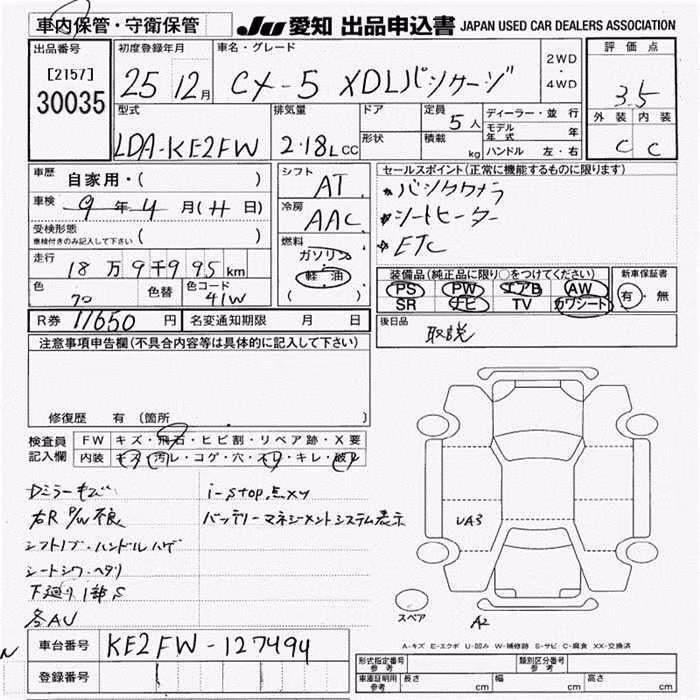 車内保管・守衛保管 JU 愛知 出品申込書 JAPAN USED CAR DEALERS ASSOCIATION
出品番号 初度登録年月 車名・グレード 2WD・4WD 評価点
[2157]
30035 25 12月 CX-5 XDLパッケージ 3.5
型式 排気量 ドア 定員 5人 ディーラー・並行 外装 内装
LDA-KE2FW 2.18L CC 形状 積載 kg モデル年式 年 C C
ハンドル 左・右
車歴 自家用・( ) シフト AT セールスポイント(正常に機能するものに限ります)
車検 9年4月( 日) 冷房 AAC
シートヒーター
受検形態 車検付きのみ記入して下さい ( ) 燃料 ETC
走行 18万9千995km ガソリン
軽油
( )
装備品(純正品に限り○をつけてください) 新車保証書
色 色替 色コード 41W PS PW エアB AW 有・無
SR ナビ TV カワシート
R券 11650円 名変通知期限 月 日 後日品 取説
注意事項申告欄(不具合内容等は具体的に記入して下さい)
修復歴 有(箇所
検査員記入欄 FW キズ・飛石・ヒビ割・リペア跡・X要
内装 キズ・汚レ・コゲ・穴・スレ・キレ・破レ
Dミラーキズ i-stop点
右R P/W不良 バッテリーマネジメントシステム表示
シフトノブ・ハンドルハゲ
シートシワ・ヘタリ
下廻り1部S
各AU
UA3
スペア A2
A-キズ E-エクボ U-凹み W-補修跡 S-サビ C-腐食 XX-交換済
車台番号 KE2FW-127494
登録番号
形式指定番号 参考 類別区分番号 参考
車庫証明用 参考 長さ cm 幅 cm 高さ cm